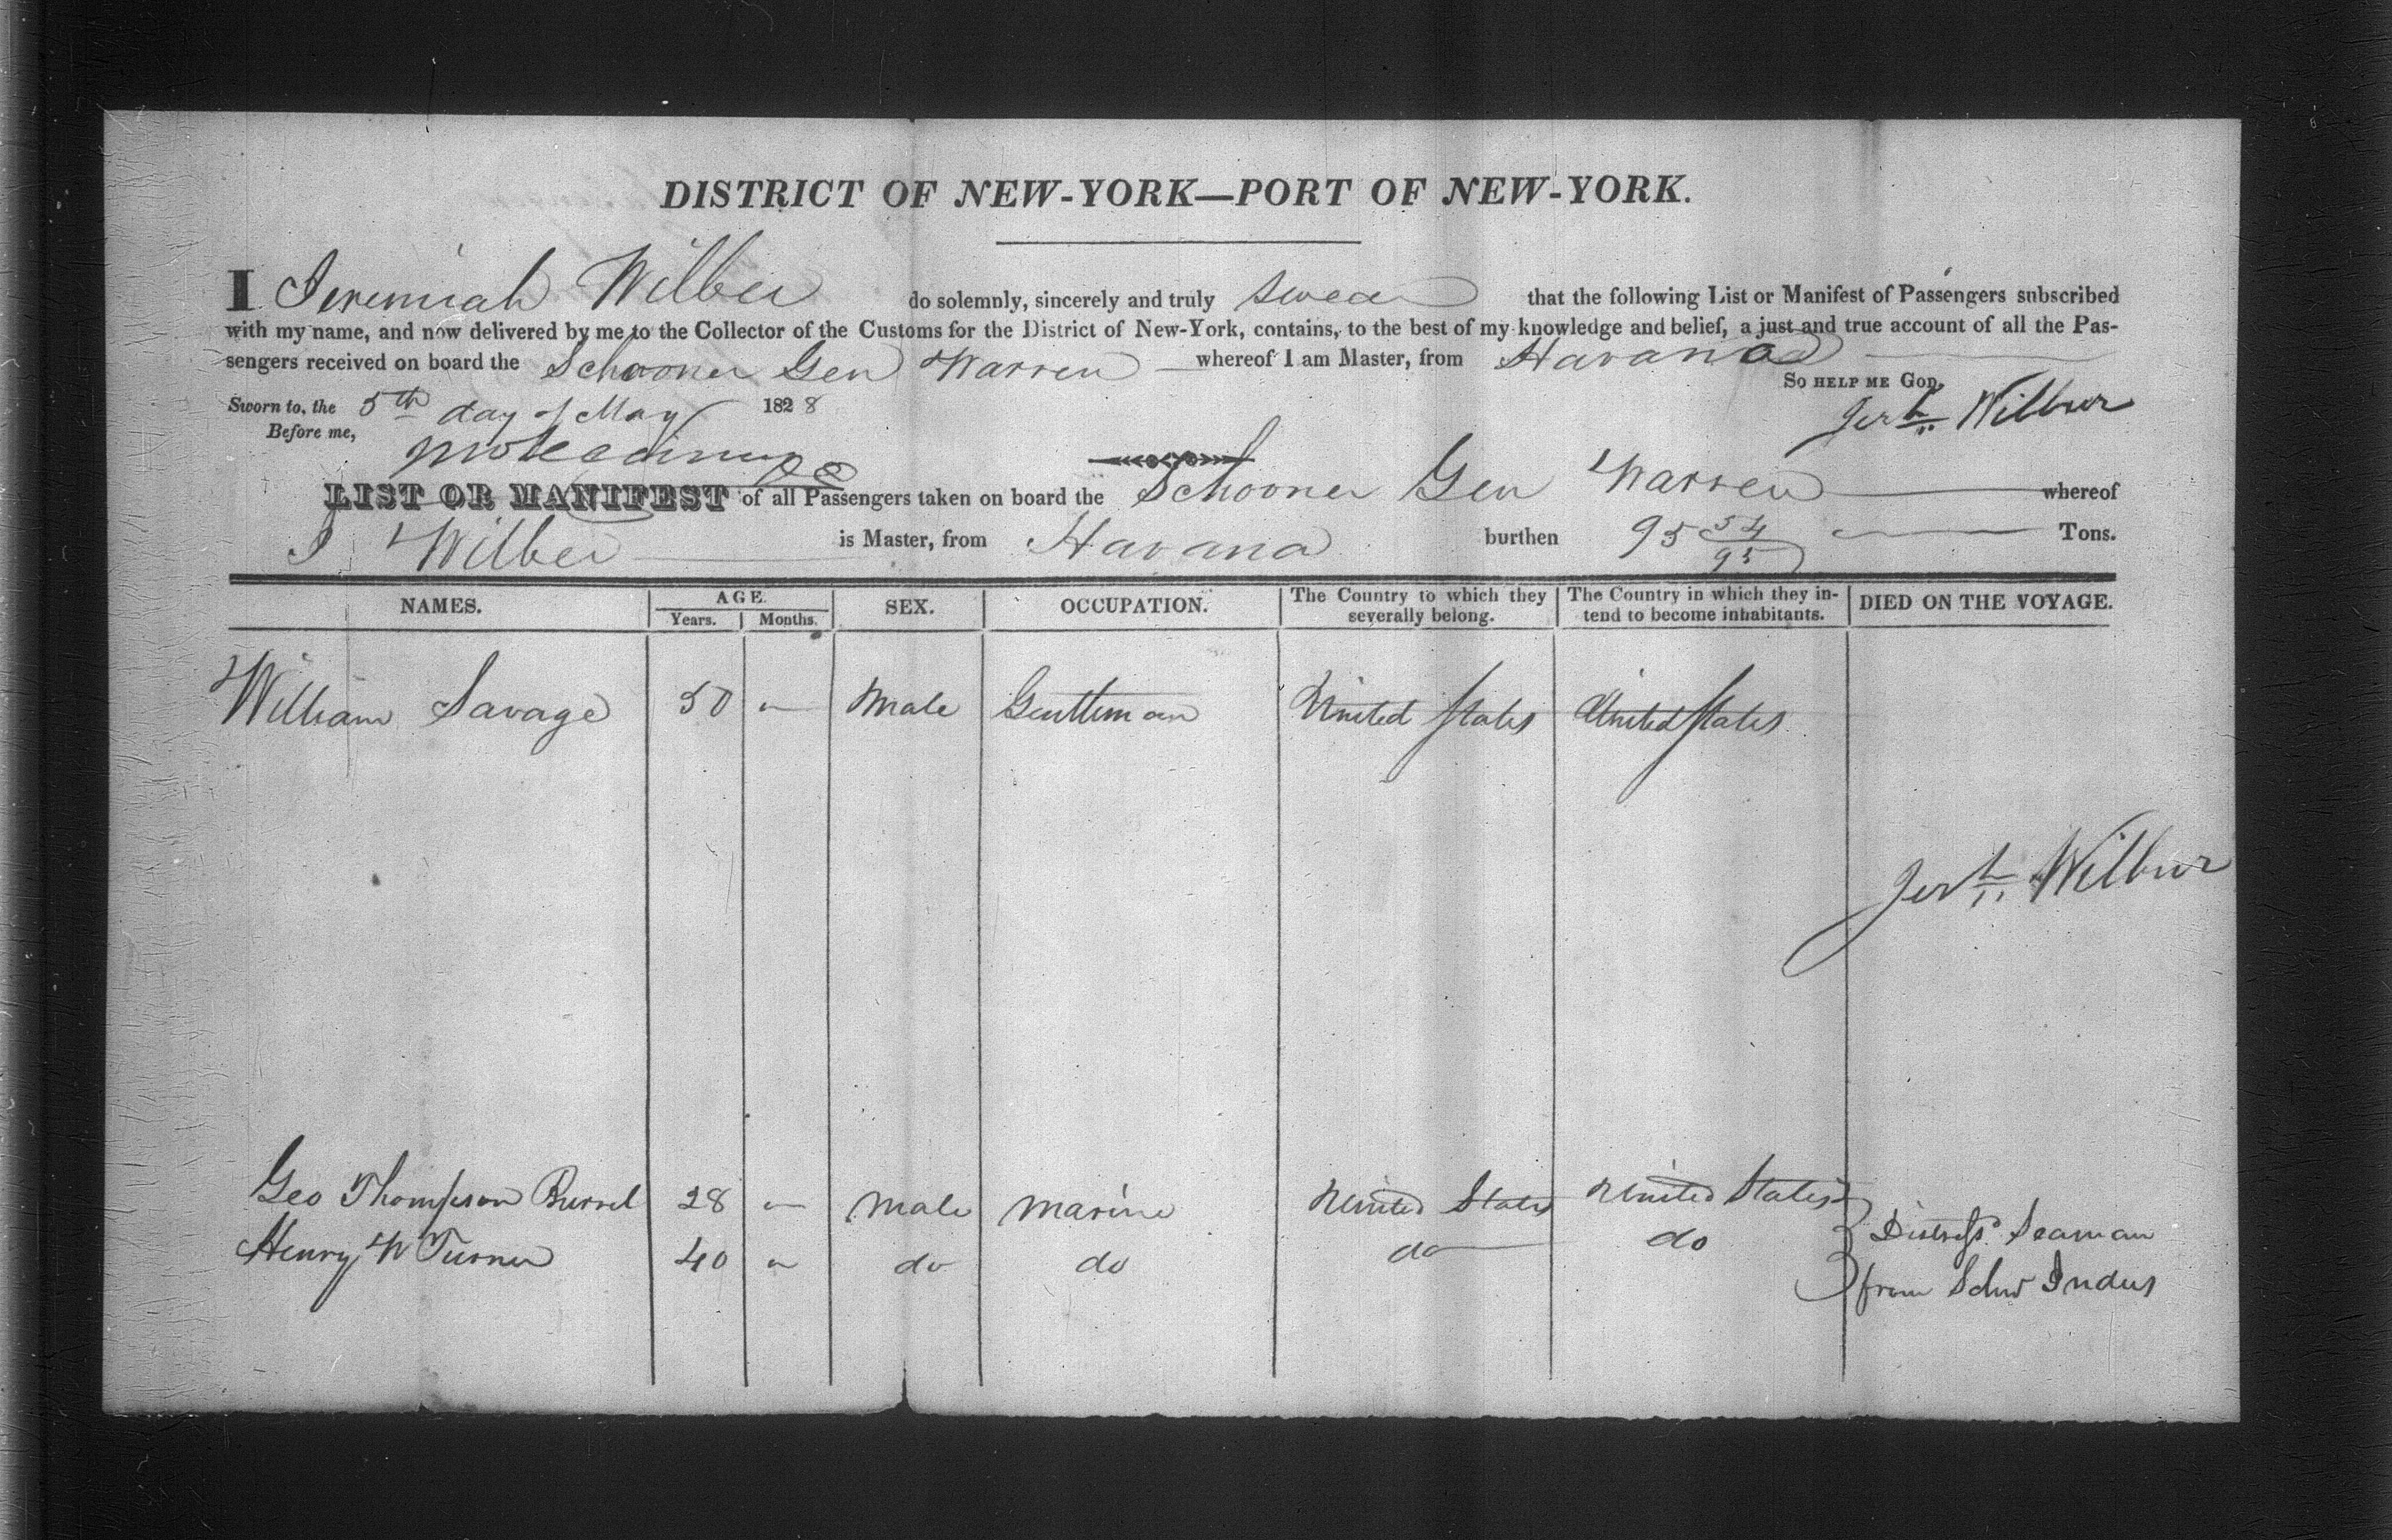 DISTRICT OF NEW-YORK—PORT OF NEW-YORK.
I Jeremiah Wilber do solemnly, sincerely and truly swear that the following List or Manifest of Passengers subscribed
with my name, and now delivered by me to the Collector of the Customs for the District of New-York, contains, to the best of my knowledge and belief, a just and true account of all the Pas-
sengers received on board the Schooner Gen Warren whereof I am Master, from Havana
So HELP ME GOD.
Sworn to, the 5th day of May 1828 Jerh Wilbur
Before me,
LIST OR MANIFEST of all Passengers taken on board the Schooner Gen Warren whereof
J Wilber is Master, from Havana burthen 95 54/95 Tons.
NAMES. AGE. Years. Months. SEX. OCCUPATION. The Country to which they severally belong. The Country in which they in-tend to become inhabitants. DIED ON THE VOYAGE.
William Savage 50 Male Gentleman United States United States
Jerh Wilbur
Geo Thompson Burrel 28 Male Marine United States United States
Henry W Turner 40 do do do do
Distress Seaman
from Schr Indus